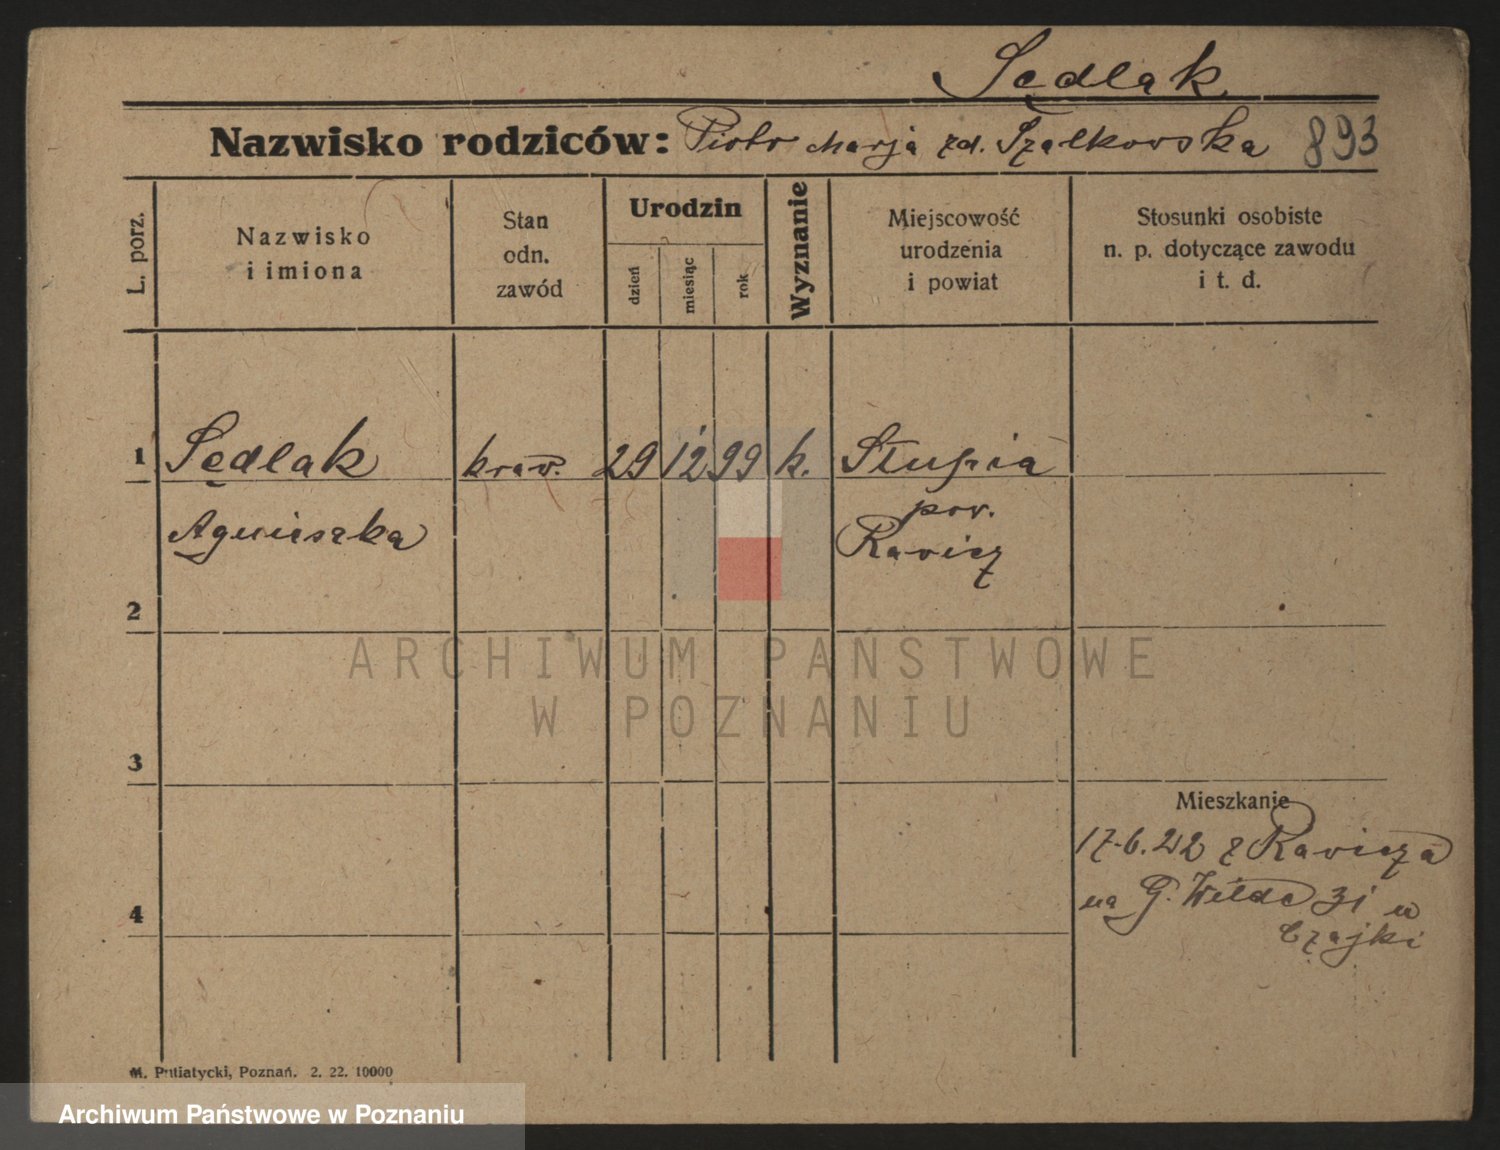 Sędlak
Nazwisko rodziców: Piotr Marja zd. Szałkowska 893
L. porz.
Nazwisko
i imiona
Stan
odn.
zawód
Urodzin
dzień
miesiąc
rok
Wyznanie
Miejscowość
urodzenia
i powiat
Stosunki osobiste
n. p. dotyczące zawodu
i t. d.
1 Sędlak kraw. 29 12 99 k. Słupia
Agnieszka pow.
Rawicz
2
3
4
Mieszkanie
17.6.22 z Rawicza
na G. Wilda 31 u
Czajki
M. Putiatycki, Poznań. 2. 22. 10000
ARCHIWUM PAŃSTWOWE
W POZNANIU
Archiwum Państwowe w Poznaniu